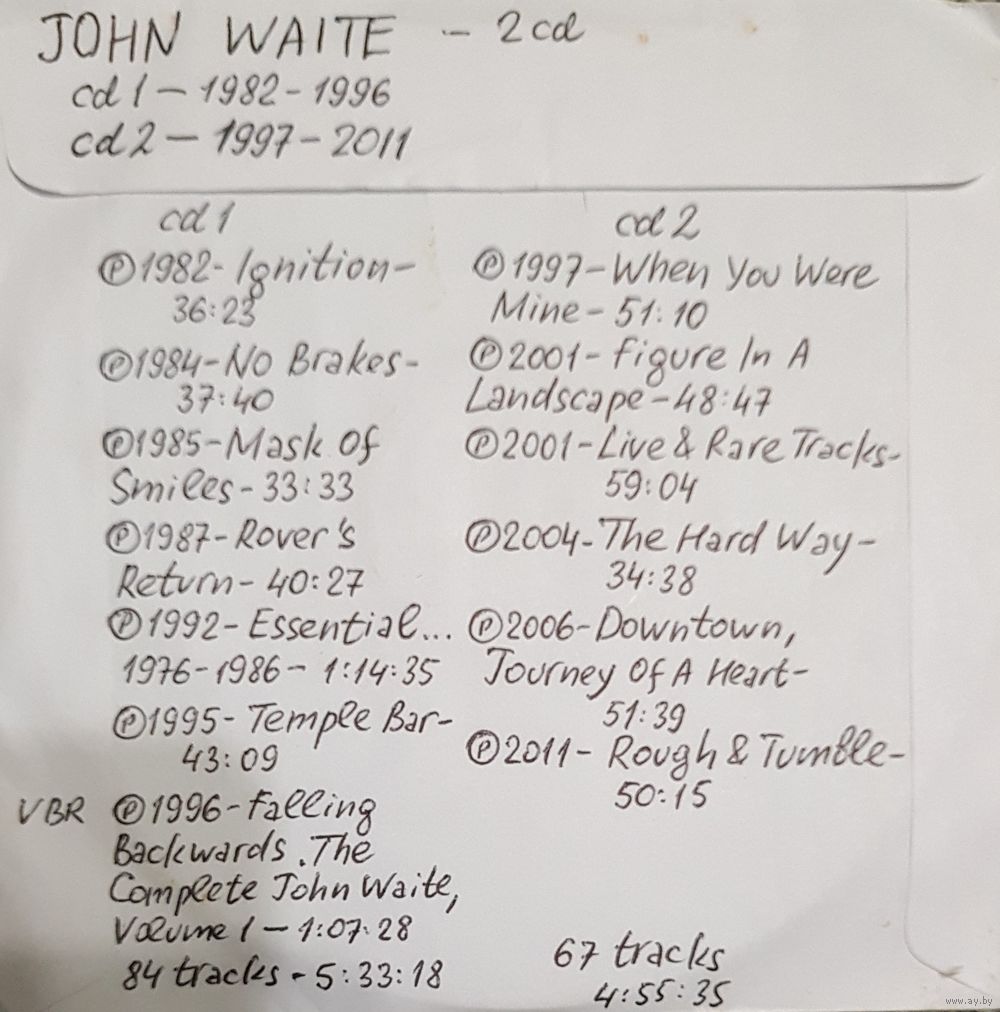 JOHN WAITE - 2cd
cd 1 - 1982-1996
cd 2 - 1997-2011
cd 1
Ⓟ1982-Ignition-
36:23
Ⓟ1984-No Brakes-
37:40
Ⓟ1985-Mask Of
Smiles-33:33
Ⓟ1987-Rover's
Return-40:27
Ⓟ1992-Essential...
1976-1986-1:14:35
Ⓟ1995-Temple Bar-
43:09
VBR Ⓟ1996-Falling
Backwards.The
Complete John Waite,
Volume 1-1:07:28
84 tracks-5:33:18
cd 2
Ⓟ1997-When You Were
Mine-51:10
Ⓟ2001-Figure In A
Landscape-48:47
Ⓟ2001-Live & Rare Tracks-
59:04
Ⓟ2004-The Hard Way-
34:38
Ⓟ2006-Downtown,
Journey Of A Heart-
51:39
Ⓟ2011-Rough & Tumble-
50:15
67 tracks
4:55:35
www.ay.by